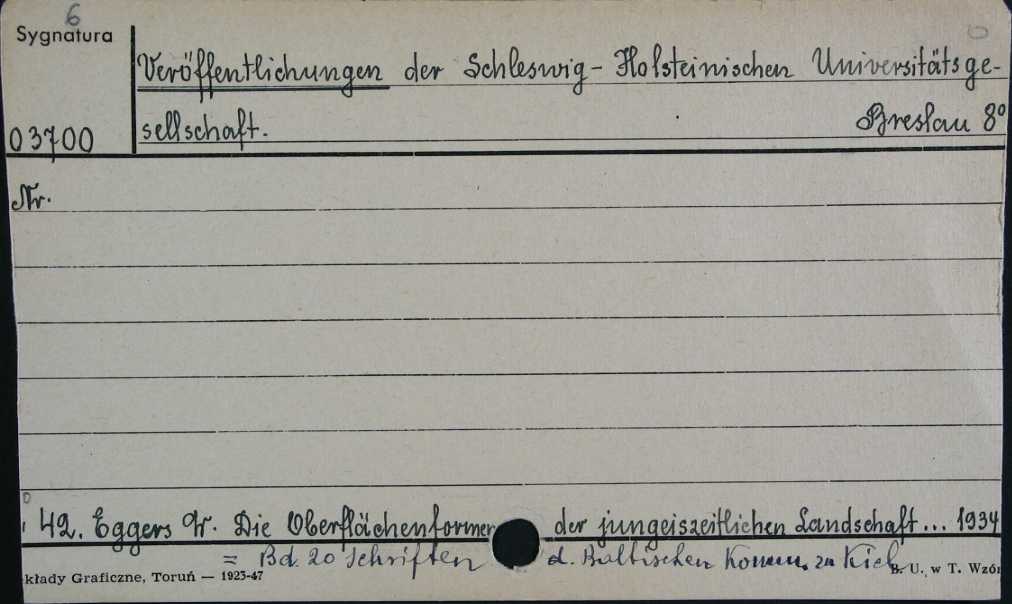 6
Sygnatura
Veröffentlichungen der Schleswig-Holsteinischen Universitätsge-
03700 sellschaft. Breslau 8°
Nr.
42. Eggers W. Die Oberflächenformen der jungeiszeitlichen Landschaft... 1934
= Bd. 20 Schriften d. Baltischen Komm. zu Kiel
kłady Graficzne, Toruń — 1925-47 B. U. w T. Wzór